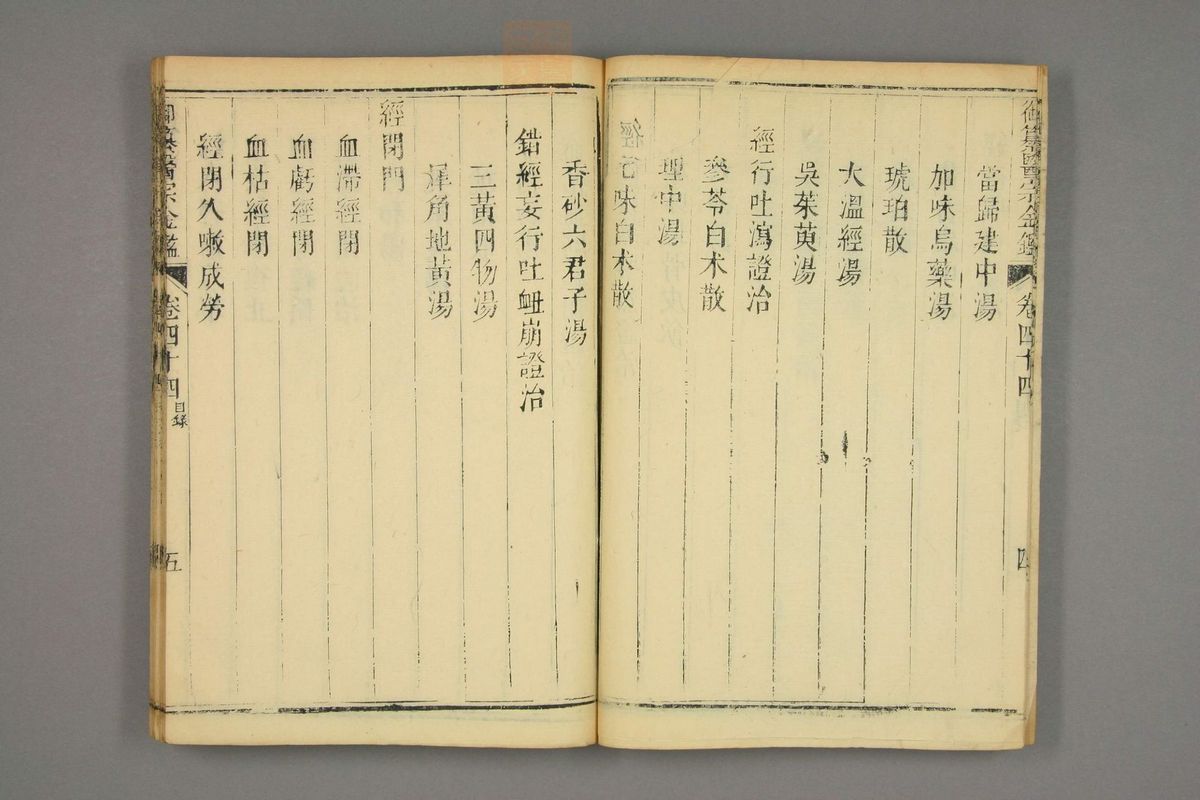 御纂醫宗金鑑 卷四十四 四
當歸建中湯
加味烏藥湯
琥珀散
大溫經湯
吳茱萸湯
經行吐瀉證治
參苓白术散
理中湯
味白术散
香砂六君子湯
錯經妄行吐衄崩證治
三黃四物湯
犀角地黃湯
經閉門
血滯經閉
血虧經閉
血枯經閉
經閉久嗽成勞
御纂醫宗金鑑 卷四十四 目錄 五